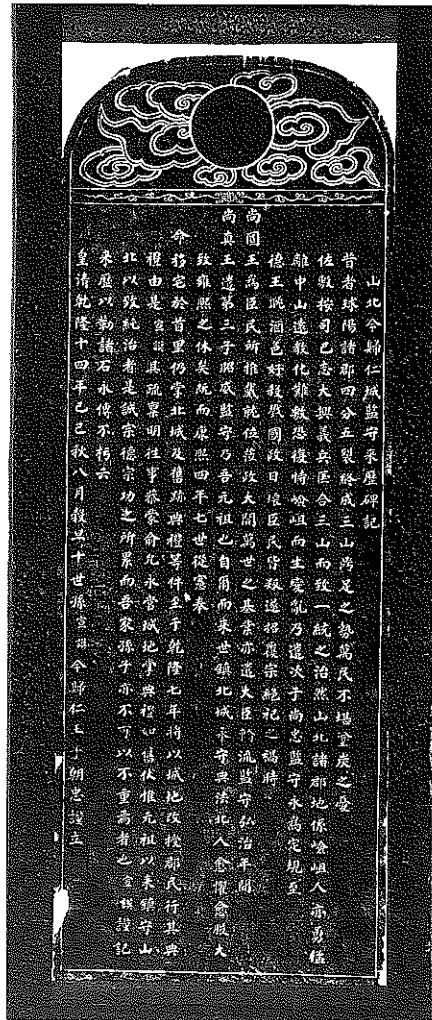 山北今歸仁城監守來歷碑記
昔者球陽諸郡四分五裂終成三山鼎足之勢萬民不堪塗炭之憂
佐敷按司巴志大興義兵匡合三山而致一統之治然山北諸郡地係嶮岨人亦勇猛
離中山遠教化難敷恐復恃嶮岨而生變亂乃遣次子尚忠監守永為定規至
德王耽酒色好殺戮國政日壞臣民叛遂招覆宗絶祀之禍時
尚圓王為臣民所推戴就位釐政大開萬世之基業亦遣大臣輪流監守弘治年間
尚真王遣第三子昭威監守乃吾元祖也自爾而來世鎮北城永守典法北人愈懼愈服大
致雍熙之休矣既而康熙四年七世從憲奉
命移宅於首里仍掌北城及舊跡典禮等件至于乾隆七年將以城地改授郡民行其典
禮由是宣謨具疏累明往事恭蒙俞允永管城地掌典禮如舊伏惟元祖以來鎮守山
北以致純治者是誠宗德宗功之所累而吾家孫子亦不可以不重焉者也宣謨謹記
來歷以勒諸石永傳不朽云
皇清乾隆十四年己巳秋八月穀旦十世孫宣謨今歸仁王子朝忠謹立